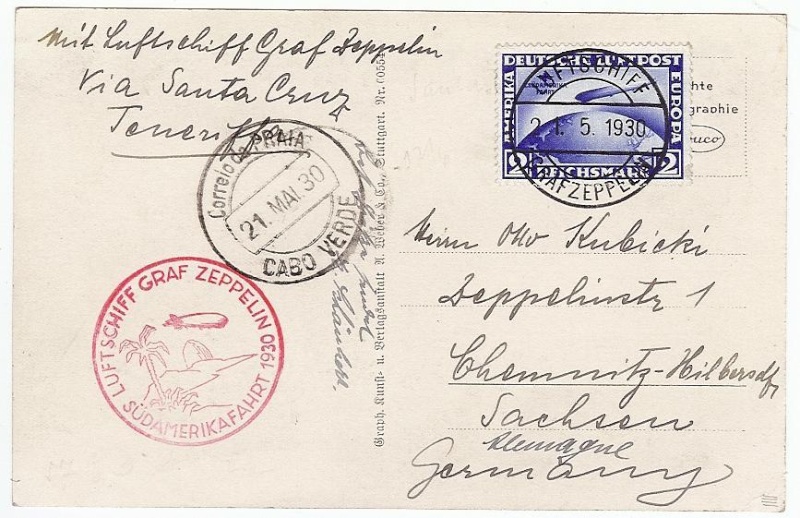 Mit Luftschiff Graf Zeppelin
Via Santa Cruz
Teneriffa
Correio da PRAIA
21. MAI. 30
CABO VERDE
LUFTSCHIFF GRAF ZEPPELIN
SÜDAMERIKAFAHRT 1930
Graph. Kunst- u. Verlagsanstalt A. Weber & Co., Stuttgart. Nr. 00554
DEUTSCHE LUFTPOST
AMERIKA
EUROPA
SÜDAMERIKA
FAHRT
2 REICHSMARK 2
LUFTSCHIFF
21. 5. 1930
GRAF ZEPPELIN
Herrn Otto Kubicki
Zeppelinstr 1
Chemnitz-Hilbersdf,
Sachsen
Allemagne
Germany